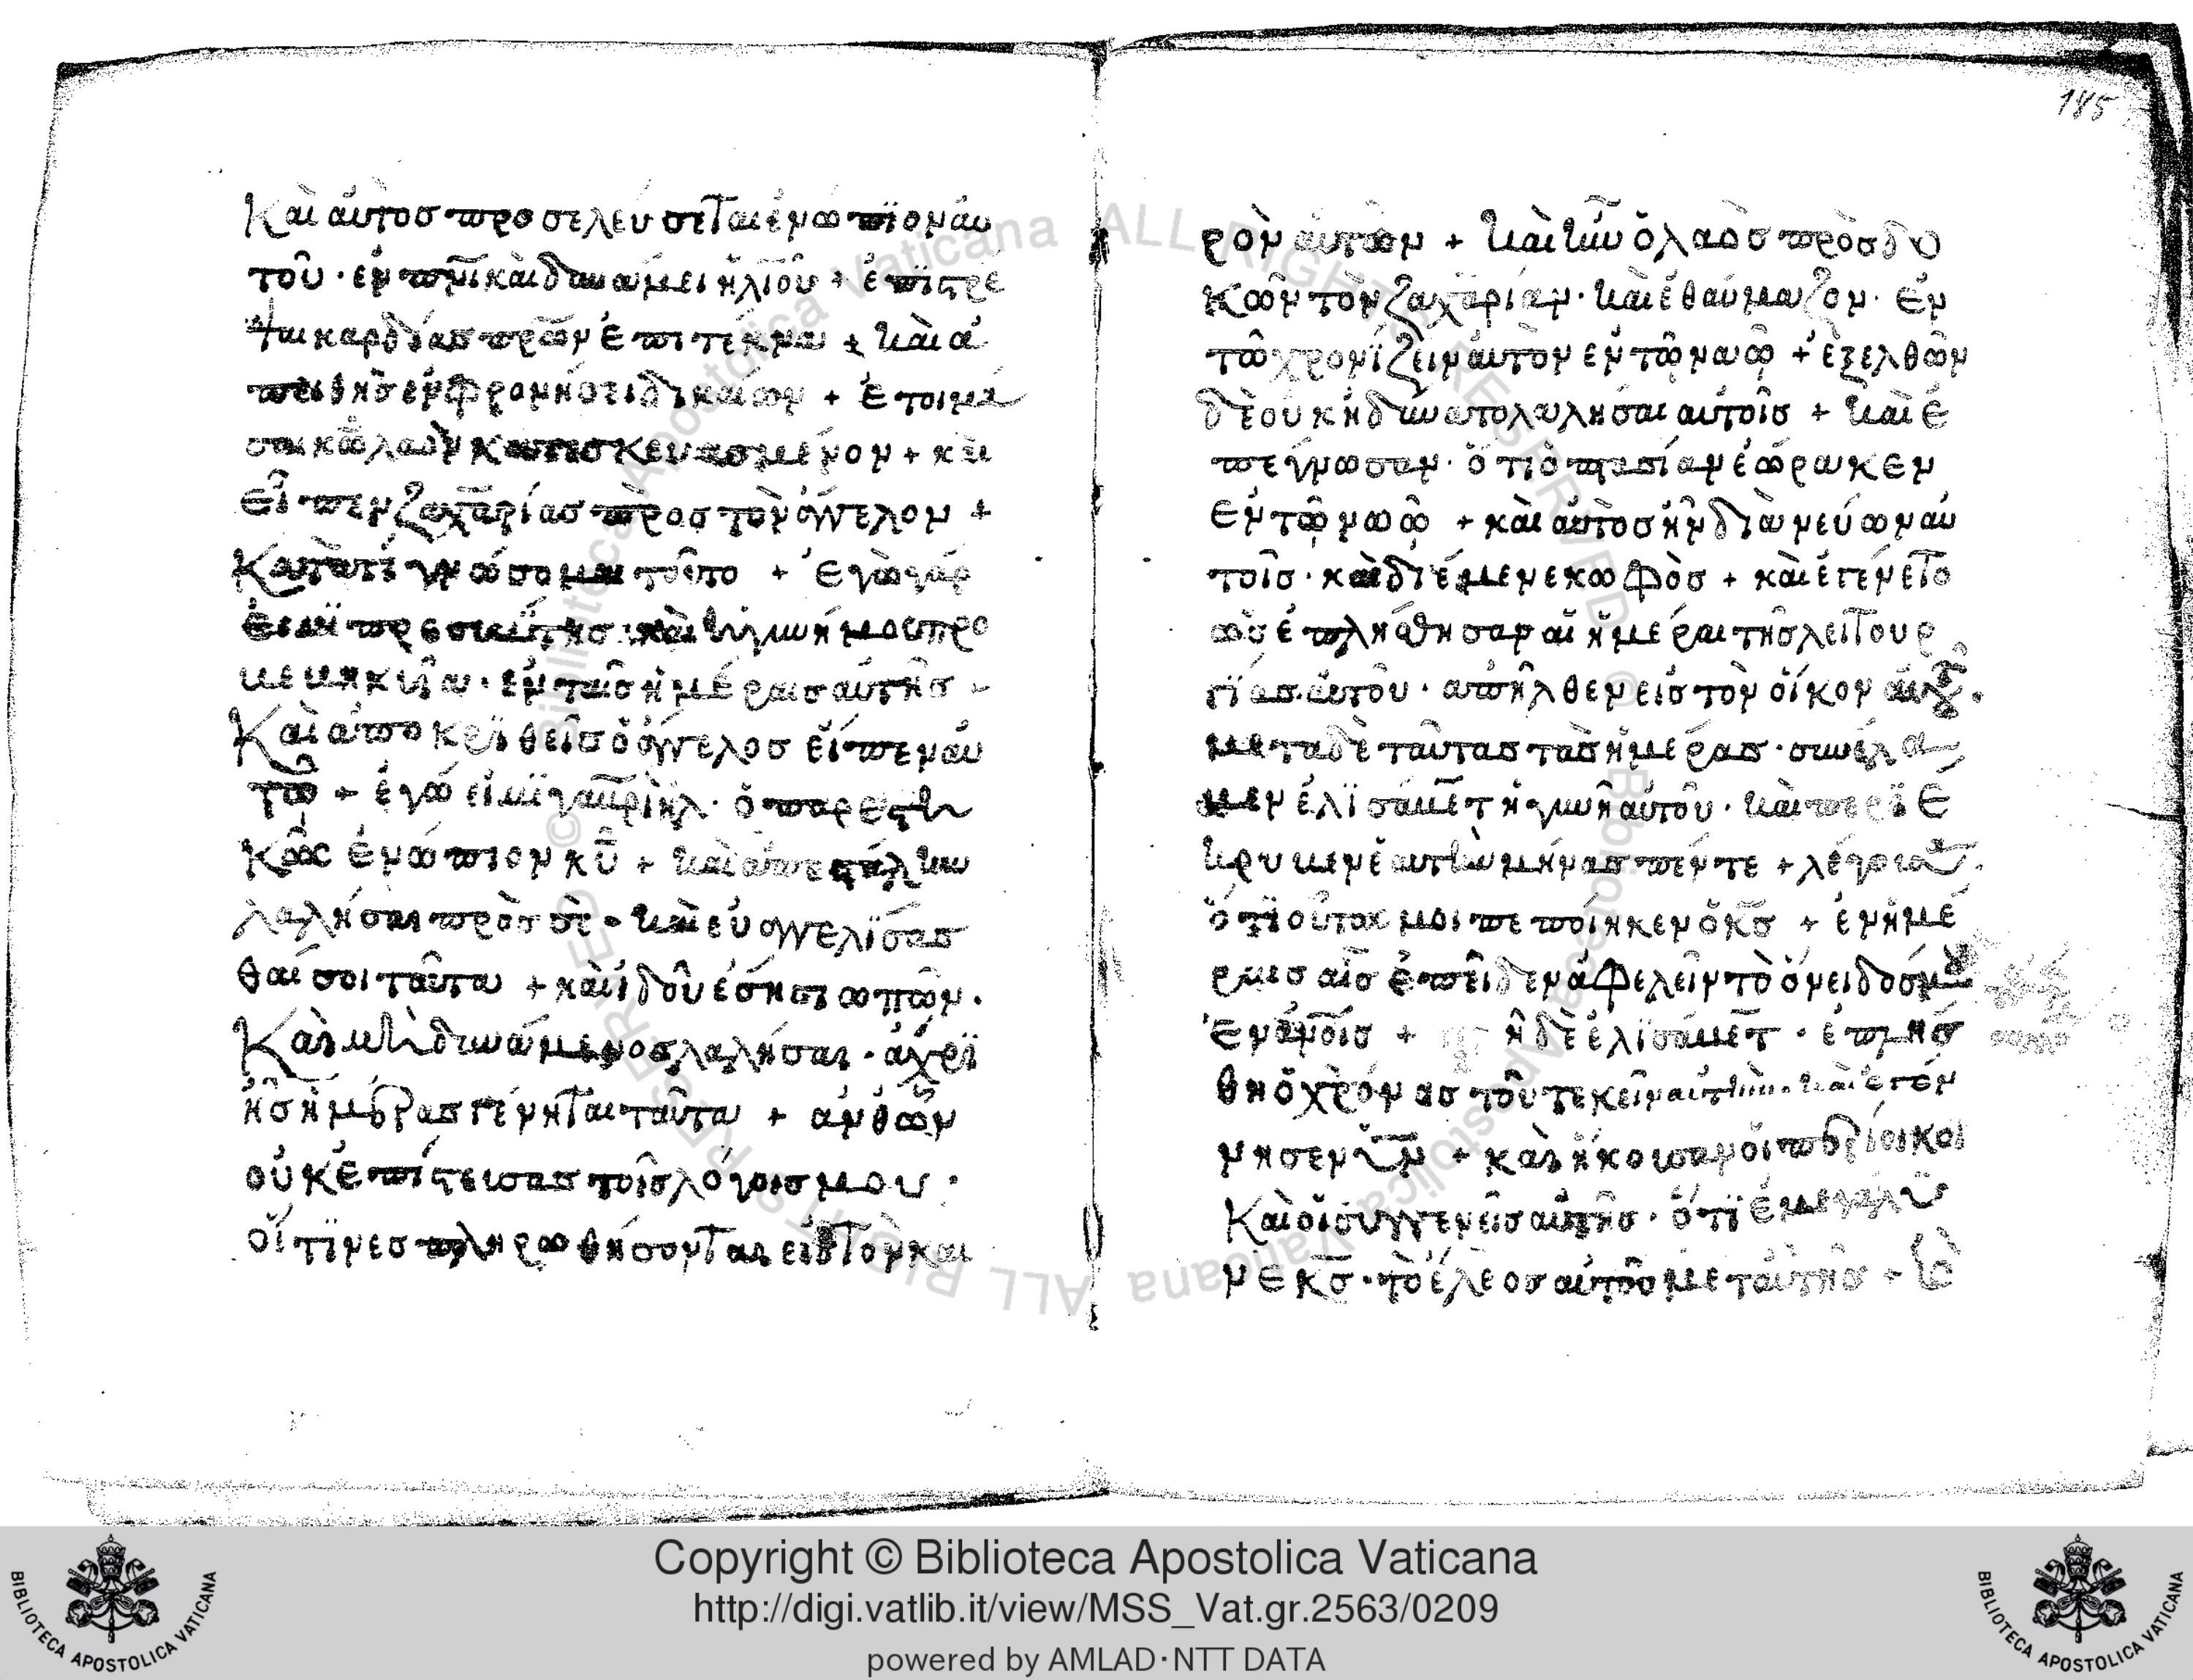 Καὶ αὐτοσ προσελεύσεται ἐνωπϊον αυ
τοῦ · ἐν πνϊ καὶ δυνάμει ἠλϊοῦ + ἐπϊστρέ
ψαι καρδίασ πρων ἐπι τέκνα + καὶ ἀ
πειθησ ἐν φρονήσει δικαίων + Ἑτοιμά
σαι κω λαὸν κατασκευασμένον + καὶ
Εἶπεν ζαχαρίασ πρὸσ τὸν ἄγγελον +
Κατὰ τί γνώσομαι τοῦτο + Ἐγὼ γάρ
εἰμϊ πρεσβύτησ · καὶ ἡ γυνή μου προ
βεβηκυῖα · ἐν ταῖσ ἡμέραισ αὐτῆσ -
Καὶ ἀποκρϊθεῖσ ὁ ἄγγελοσ εἶπεν αυ
τῶ + ἐγώ εἰμϊ γαβρϊὴλ · ὁ παρεστη
κὼς ἐνώπιον κῦ + καὶ ἀπεστάλην
λαλῆσαι πρὸσ σὲ · καὶ εὐαγγελϊσασ
θαί σοι ταῦτα + καὶ ϊδοῦ ἔση σιωπῶν .
Καὶ μὴ δυνάμενοσ λαλῆσαι · ἄχρϊ
ἧσ ἡμέρασ γένηται ταῦτα + ἀνθῶν
οὐκ ἐπίστευσασ τοῖσ λόγοισ μου ·
οἵτϊνεσ πληρωθήσονται εἰσ τὸν και
ρὸν αὐτῶν + Καὶ ἦν ὁ λαὸσ πρὸσδο
κῶν τὸν ζαχαρίαν · καὶ ἐθαύμαζον · Ἐν
τῶ χρονϊζειν αὐτὸν ἐν τῶ ναῶ + ἐξελθῶν
δὲ οὐκ ἠδύνατο λαλῆσαι αὐτοῖσ + Καὶ ἐ
πέγνωσαν · ὅτι ὀπτασίαν ἑώρακεν
Ἐν τῶ ναῶ + καὶ αὐτὸσ ἦν διανεύων αυ
τοῖσ · καὶ διέμενε κωφὸσ + καὶ ἐγένετο
ὡσ ἐπλήσθησαν αἱ ἡμέραι τῆσ λειτουρ
γϊασ αὐτοῦ · ἀπῆλθεν εἰσ τὸν οἶκον αὐτοῦ .
μετὰ δὲ ταῦτασ τὰσ ἡμέρασ · συνέλα
βεν ἐλϊσάβετ ἡ γυνὴ αὐτοῦ · καὶ περϊέ
κρυβεν ἑαυτὴν μῆνασ πέντε + λέγουσα .
ὅτϊ οὕτω μοι πεποίηκεν ὁ κσ + ἐν ἡμέ
ραισ αἷσ ἐπεῖδεν ἀφελεῖν τὸ ὄνειδοσ μου
Ἐν ἀνοῖσ + ἡ δὲ ἐλϊσάβετ · ἐπλήσ
θη ὁ χρόνοσ τοῦ τεκεῖν αὐτὴν · καὶ ἐγέν
νησεν υν + καὶ ἤκουσαν οἱ περίοικοι
Καὶ οἱ συγγενεῖσ αὐτῆσ · ὅτϊ ἐμεγάλυ
νε κσ · τὸ ἔλεοσ αὐτοῦ μετ αὐτῆσ +
185
Copyright © Biblioteca Apostolica Vaticana
http://digi.vatlib.it/view/MSS_Vat.gr.2563/0209
powered by AMLAD·NTT DATA
BIBLIOTECA APOSTOLICA VATICANA
BIBLIOTECA APOSTOLICA VATICANA